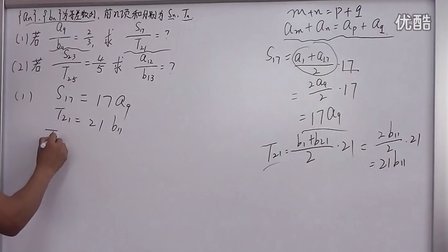 {an}.{bn}为等差数列,前n项和分别为Sn.Tn
(1)若 a9/b = 2/3, 求 S17/T21 = ?
(2)若 S23/T25 = 4/5 求 a12/b13 = ?
(1) S17 = 17a9
T21 = 21 b11
m+n = p+q
am+an = ap+aq
S17 = (a1+a17)/2 · 17
= 2a9/2 · 17
= 17a9
T21 = (b1+b21)/2 · 21 = 2b11/2 · 21
= 21b11
YOUKU 优酷